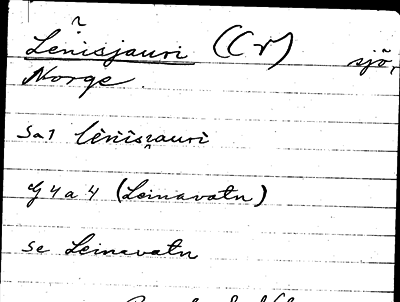 Lenisjauri (Cr) sjö,
Norge.
Sa1 lènis̯auri
G 4 a 4 (Leinavatn)
se Leinavatn